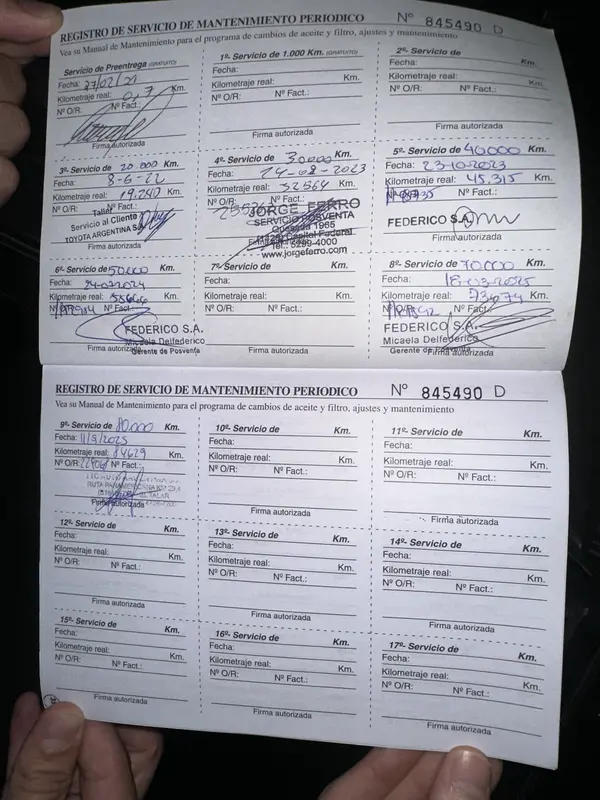 REGISTRO DE SERVICIO DE MANTENIMIENTO PERIODICO Nº 845490 D
Vea su Manual de Mantenimiento para el programa de cambios de aceite y filtro, ajustes y mantenimiento
Servicio de Preentrega (GRATUITO)
Fecha: 27/02/21
Kilometraje real: Km.
Nº O/R: Nº Fact.:
Firma autorizada
1º- Servicio de 1.000 Km. (GRATUITO)
Fecha:
Kilometraje real: Km.
Nº O/R: Nº Fact.:
Firma autorizada
2º- Servicio de Km.
Fecha:
Kilometraje real: Km.
Nº O/R: Nº Fact.:
Firma autorizada
3º- Servicio de 20.000 Km.
Fecha: 8-6-22
Kilometraje real: 19.240 Km.
Nº O/R: Nº Fact.:
Taller
Servicio al Cliente
TOYOTA ARGENTINA S.A.
Firma autorizada
4º- Servicio de 30000 Km.
Fecha: 24-08-2023
Kilometraje real: 32564 Km.
Nº O/R:
JORGE FERRO
SERVICIO POSVENTA
Quesada 1965
Capital Federal
Tel.: 5299-4000
www.jorgeferro.com
5º- Servicio de 40000 Km.
Fecha: 23-10-2023
Kilometraje real: 45.315 Km.
Nº O/R: Nº Fact.:
FEDERICO S.A.
Firma autorizada
6º- Servicio de 50000 Km.
Fecha: 24-02-2024
Kilometraje real: Km.
Nº O/R: Nº Fact.:
FEDERICO S.A.
Micaela Delfederico
Gerente de Posventa
Firma autorizada
7º- Servicio de Km.
Fecha:
Kilometraje real: Km.
Nº O/R: Nº Fact.:
Firma autorizada
8º- Servicio de 70000 Km.
Fecha: 18-03-2025
Kilometraje real: 73474 Km.
Nº O/R: Nº Fact.:
FEDERICO S.A.
Micaela Delfederico
Gerente de Posventa
Firma autorizada
REGISTRO DE SERVICIO DE MANTENIMIENTO PERIODICO Nº 845490 D
Vea su Manual de Mantenimiento para el programa de cambios de aceite y filtro, ajustes y mantenimiento
9º- Servicio de 80000 Km.
Fecha: 11/9/2025
Kilometraje real: 84629 Km.
Nº O/R: Nº Fact.:
RUTA PANAMERICANA KM
EL TALAR
Firma autorizada
10º- Servicio de Km.
Fecha:
Kilometraje real: Km.
Nº O/R: Nº Fact.:
Firma autorizada
11º- Servicio de Km.
Fecha:
Kilometraje real: Km.
Nº O/R: Nº Fact.:
Firma autorizada
12º- Servicio de Km.
Fecha:
Kilometraje real: Km.
Nº O/R: Nº Fact.:
Firma autorizada
13º- Servicio de Km.
Fecha:
Kilometraje real: Km.
Nº O/R: Nº Fact.:
Firma autorizada
14º- Servicio de Km.
Fecha:
Kilometraje real: Km.
Nº O/R: Nº Fact.:
Firma autorizada
15º- Servicio de Km.
Fecha:
Kilometraje real: Km.
Nº O/R: Nº Fact.:
Firma autorizada
16º- Servicio de Km.
Fecha:
Kilometraje real: Km.
Nº O/R: Nº Fact.:
Firma autorizada
17º- Servicio de Km.
Fecha:
Kilometraje real: Km.
Nº O/R: Nº Fact.:
Firma autorizada